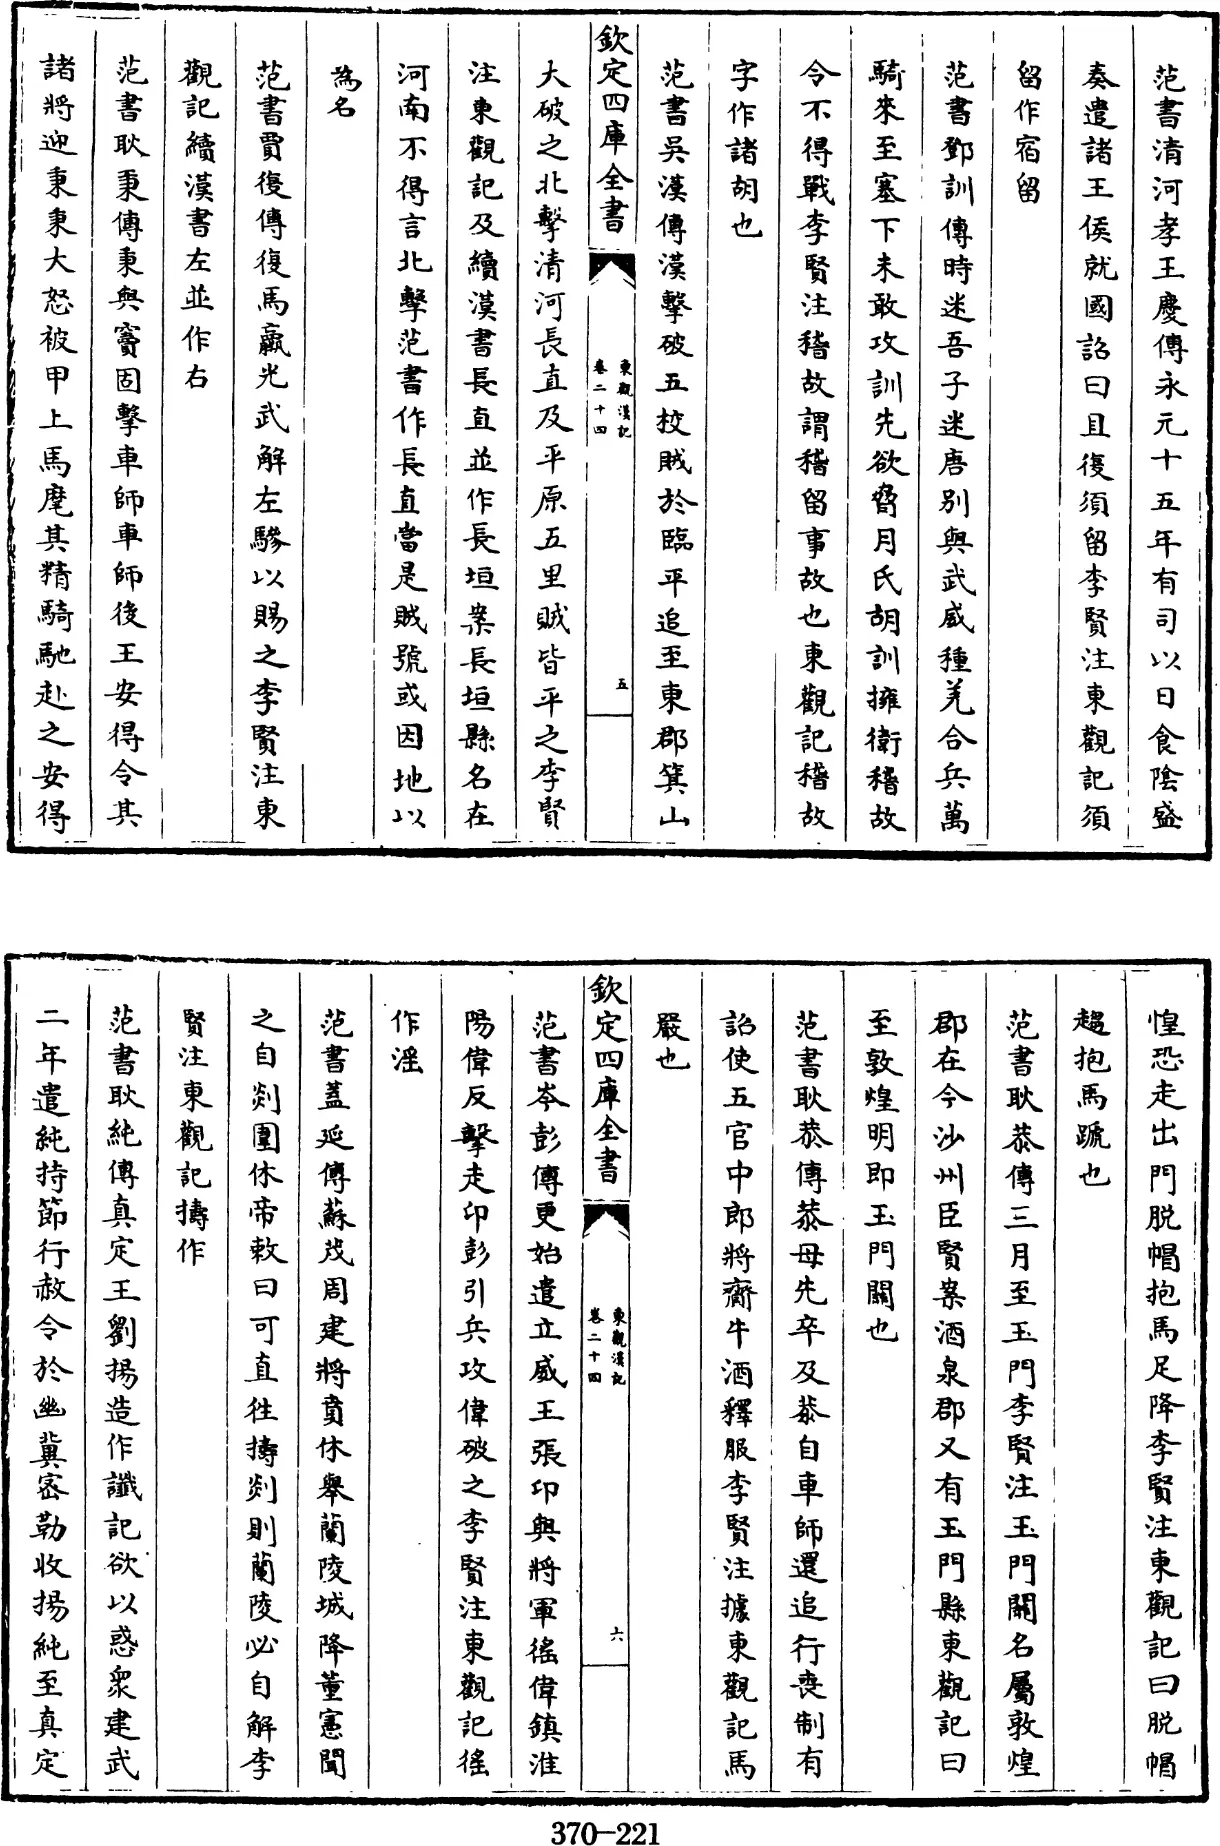 范書清河孝王慶傳永元十五年有司以日食陰盛
奏遣諸王侯就國詔曰且復須留李賢注東觀記須
留作宿留
范書鄧訓傳時迷吾子迷唐別與武威種羌合兵萬
騎來至塞下未敢攻訓先欲脅月氏胡訓擁衛稽故
令不得戰李賢注稽故謂稽留事故也東觀記稽故
字作諸胡也
范書吳漢傳漢擊破五校賊於臨平追至東郡箕山
欽定四庫全書
東觀漢記
卷二十四
五
大破之北擊清河長直及平原五里賊皆平之李賢
注東觀記及續漢書長直並作長垣案長垣縣名在
河南不得言北擊范書作長直當是賊號或因地以
為名
范書賈復傳復馬羸光武解左驂以賜之李賢注東
觀記續漢書左並作右
范書耿秉傳秉與竇固擊車師車師後王安得令其
諸將迎秉秉大怒被甲上馬麾其精騎馳赴之安得
惶恐走出門脫帽抱馬足降李賢注東觀記曰脫帽
趨抱馬蹏也
范書耿恭傳三月至玉門李賢注玉門關名屬敦煌
郡在今沙州臣賢案酒泉郡又有玉門縣東觀記曰
至敦煌明即玉門關也
范書耿恭傳恭母先卒及恭自車師還追行喪制有
詔使五官中郎將齎牛酒釋服李賢注據東觀記馬
嚴也
欽定四庫全書
東觀漢記
卷二十四
六
范書岑彭傳更始遣立威王張卬與將軍徭偉鎮淮
陽偉反擊走卬彭引兵攻偉破之李賢注東觀記徭
作淫
范書蓋延傳蘇茂周建將賁休舉蘭陵城降董憲聞
之自剡圍休帝敕曰可直往擣剡則蘭陵必自解李
賢注東觀記擣作
范書耿純傳真定王劉揚造作讖記欲以惑衆建武
二年遣純持節行赦令於幽冀密勒收揚純至真定
370—221